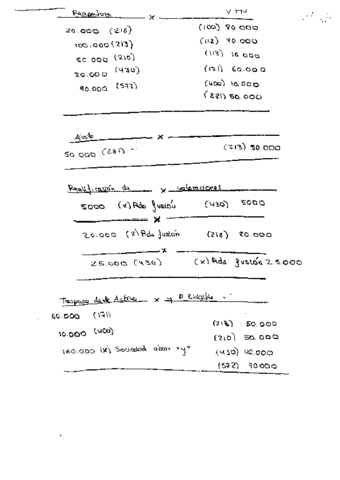 Reapertura x
20.000 (210) (100) 80.000
100.000 (213) (112) 90.000
50.000 (210) (113) 10.000
20.000 (430) (171) 60.000
90.000 (572) (400) 10.000
(281) 50.000
Ajuste x
50.000 (281) - (213) 50.000
Rectificación de x valoraciones
5000 (x) Rdo fusión (430) 5000
x
20.000 (x) Rdo fusión (210) 20.000
x
25.000 (430) (x) Rdo fusión 25.000
Traspaso de Activo x
60.000 (171)
(213) 50.000
10.000 (400)
(210) 50.000
160.000 (x) Sociedad "y" (430) 40.000
(572) 90000